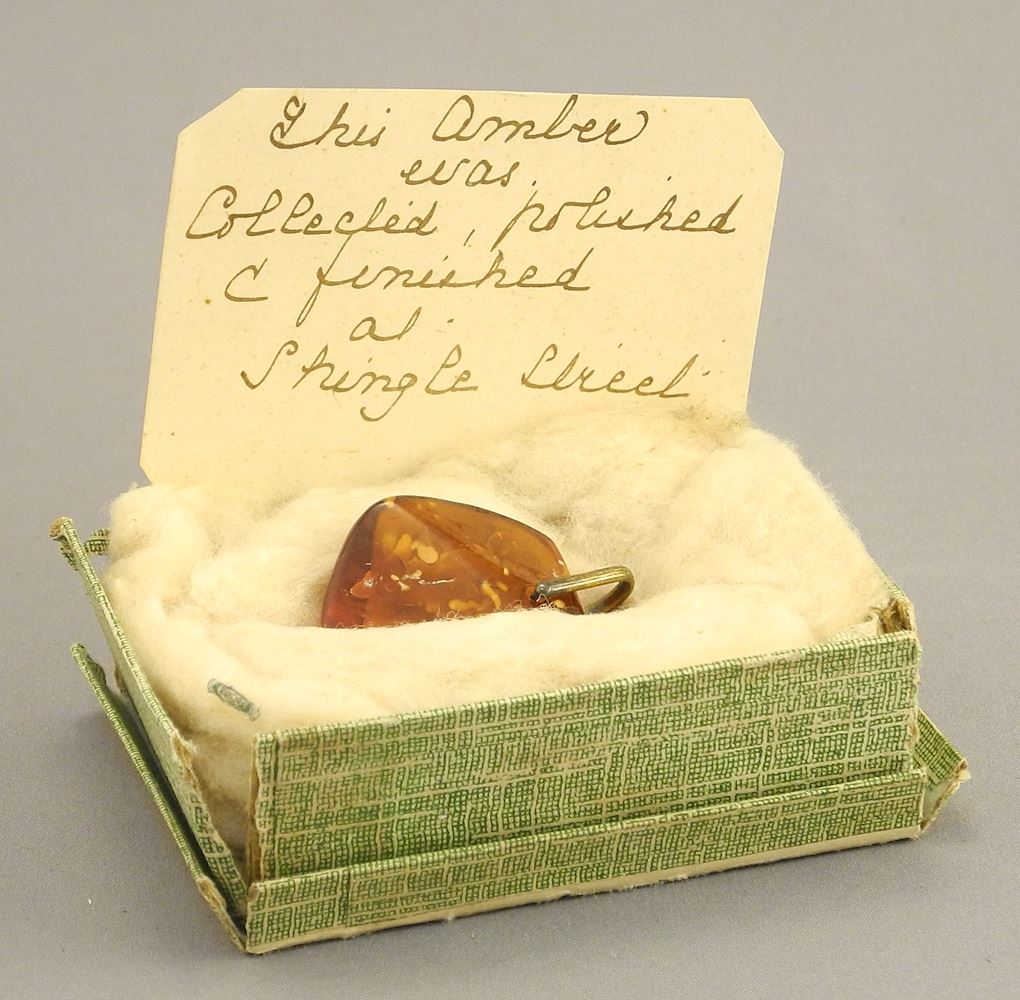 This Amber
was
Collected, polished
& finished
at
Shingle Street